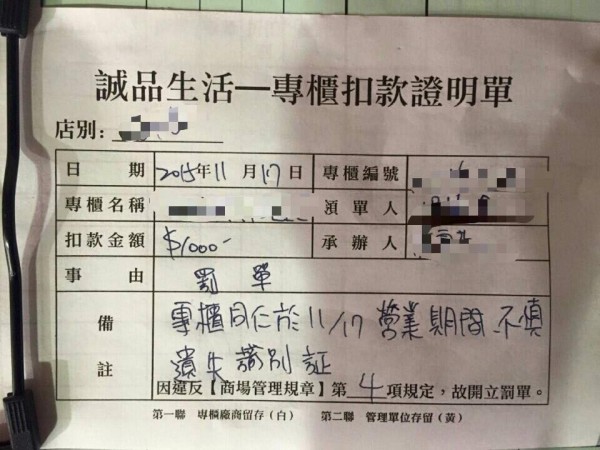 誠品生活—專櫃扣款證明單
店別:
日 期 2015年11月17日 專櫃編號
專櫃名稱 領單人
扣款金額 $1000- 承辦人
事 由 罰單
備 註 專櫃同仁於11/17營業期間不慎
遺失識別証
因違反【商場管理規章】第 4 項規定，故開立罰單。
第一聯 專櫃廠商留存（白） 第二聯 管理單位存留（黃）